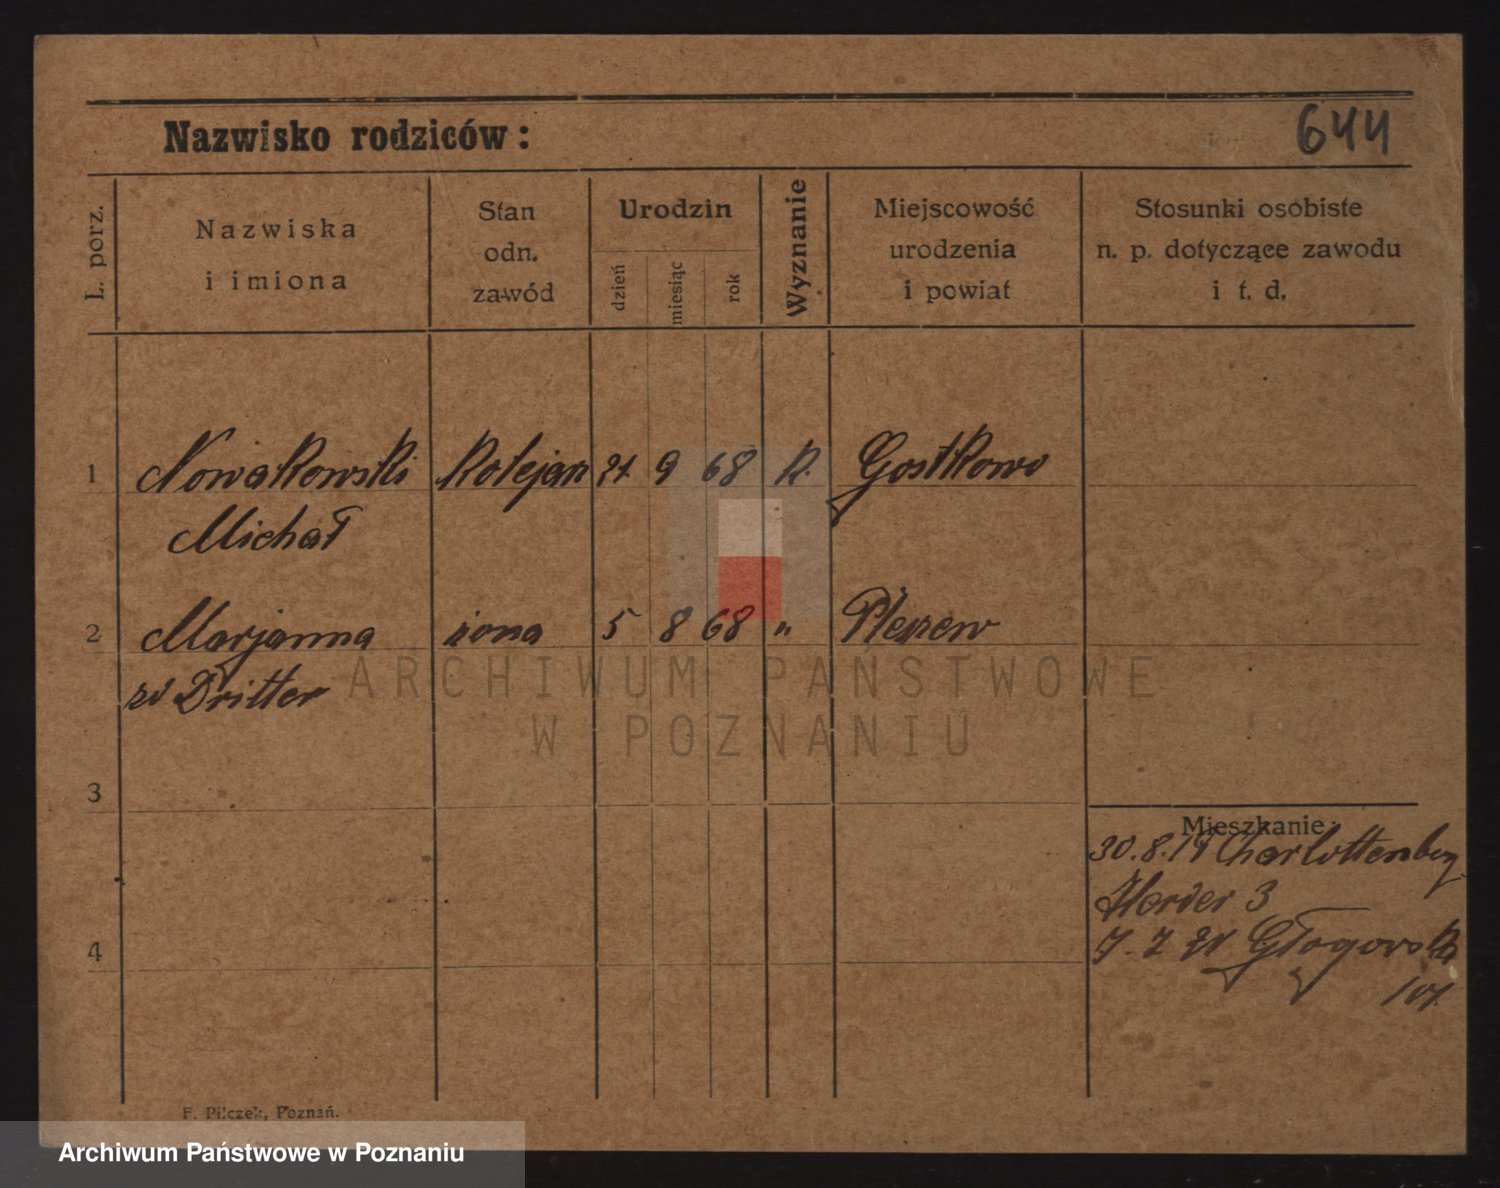 Nazwisko rodziców:
644
L. porz.
Nazwiska
i imiona
Stan
odn.
zawód
Urodzin
dzień
miesiąc
rok
Wyznanie
Miejscowość
urodzenia
i powiat
Stosunki osobiste
n. p. dotyczące zawodu
i t. d.
1
Nowakowski
Michał
Kolejarz
9
68
K.
Gostkowo
2
Marjanna
zd Dritter
żona
5
8
68
"
Pleszew
ARCHIWUM PAŃSTWOWE
W POZNANIU
3
4
Mieszkanie:
30.8.19 Charlottenburg
Herder 3
Głogowska
F. Pilczek, Poznań.
Archiwum Państwowe w Poznaniu